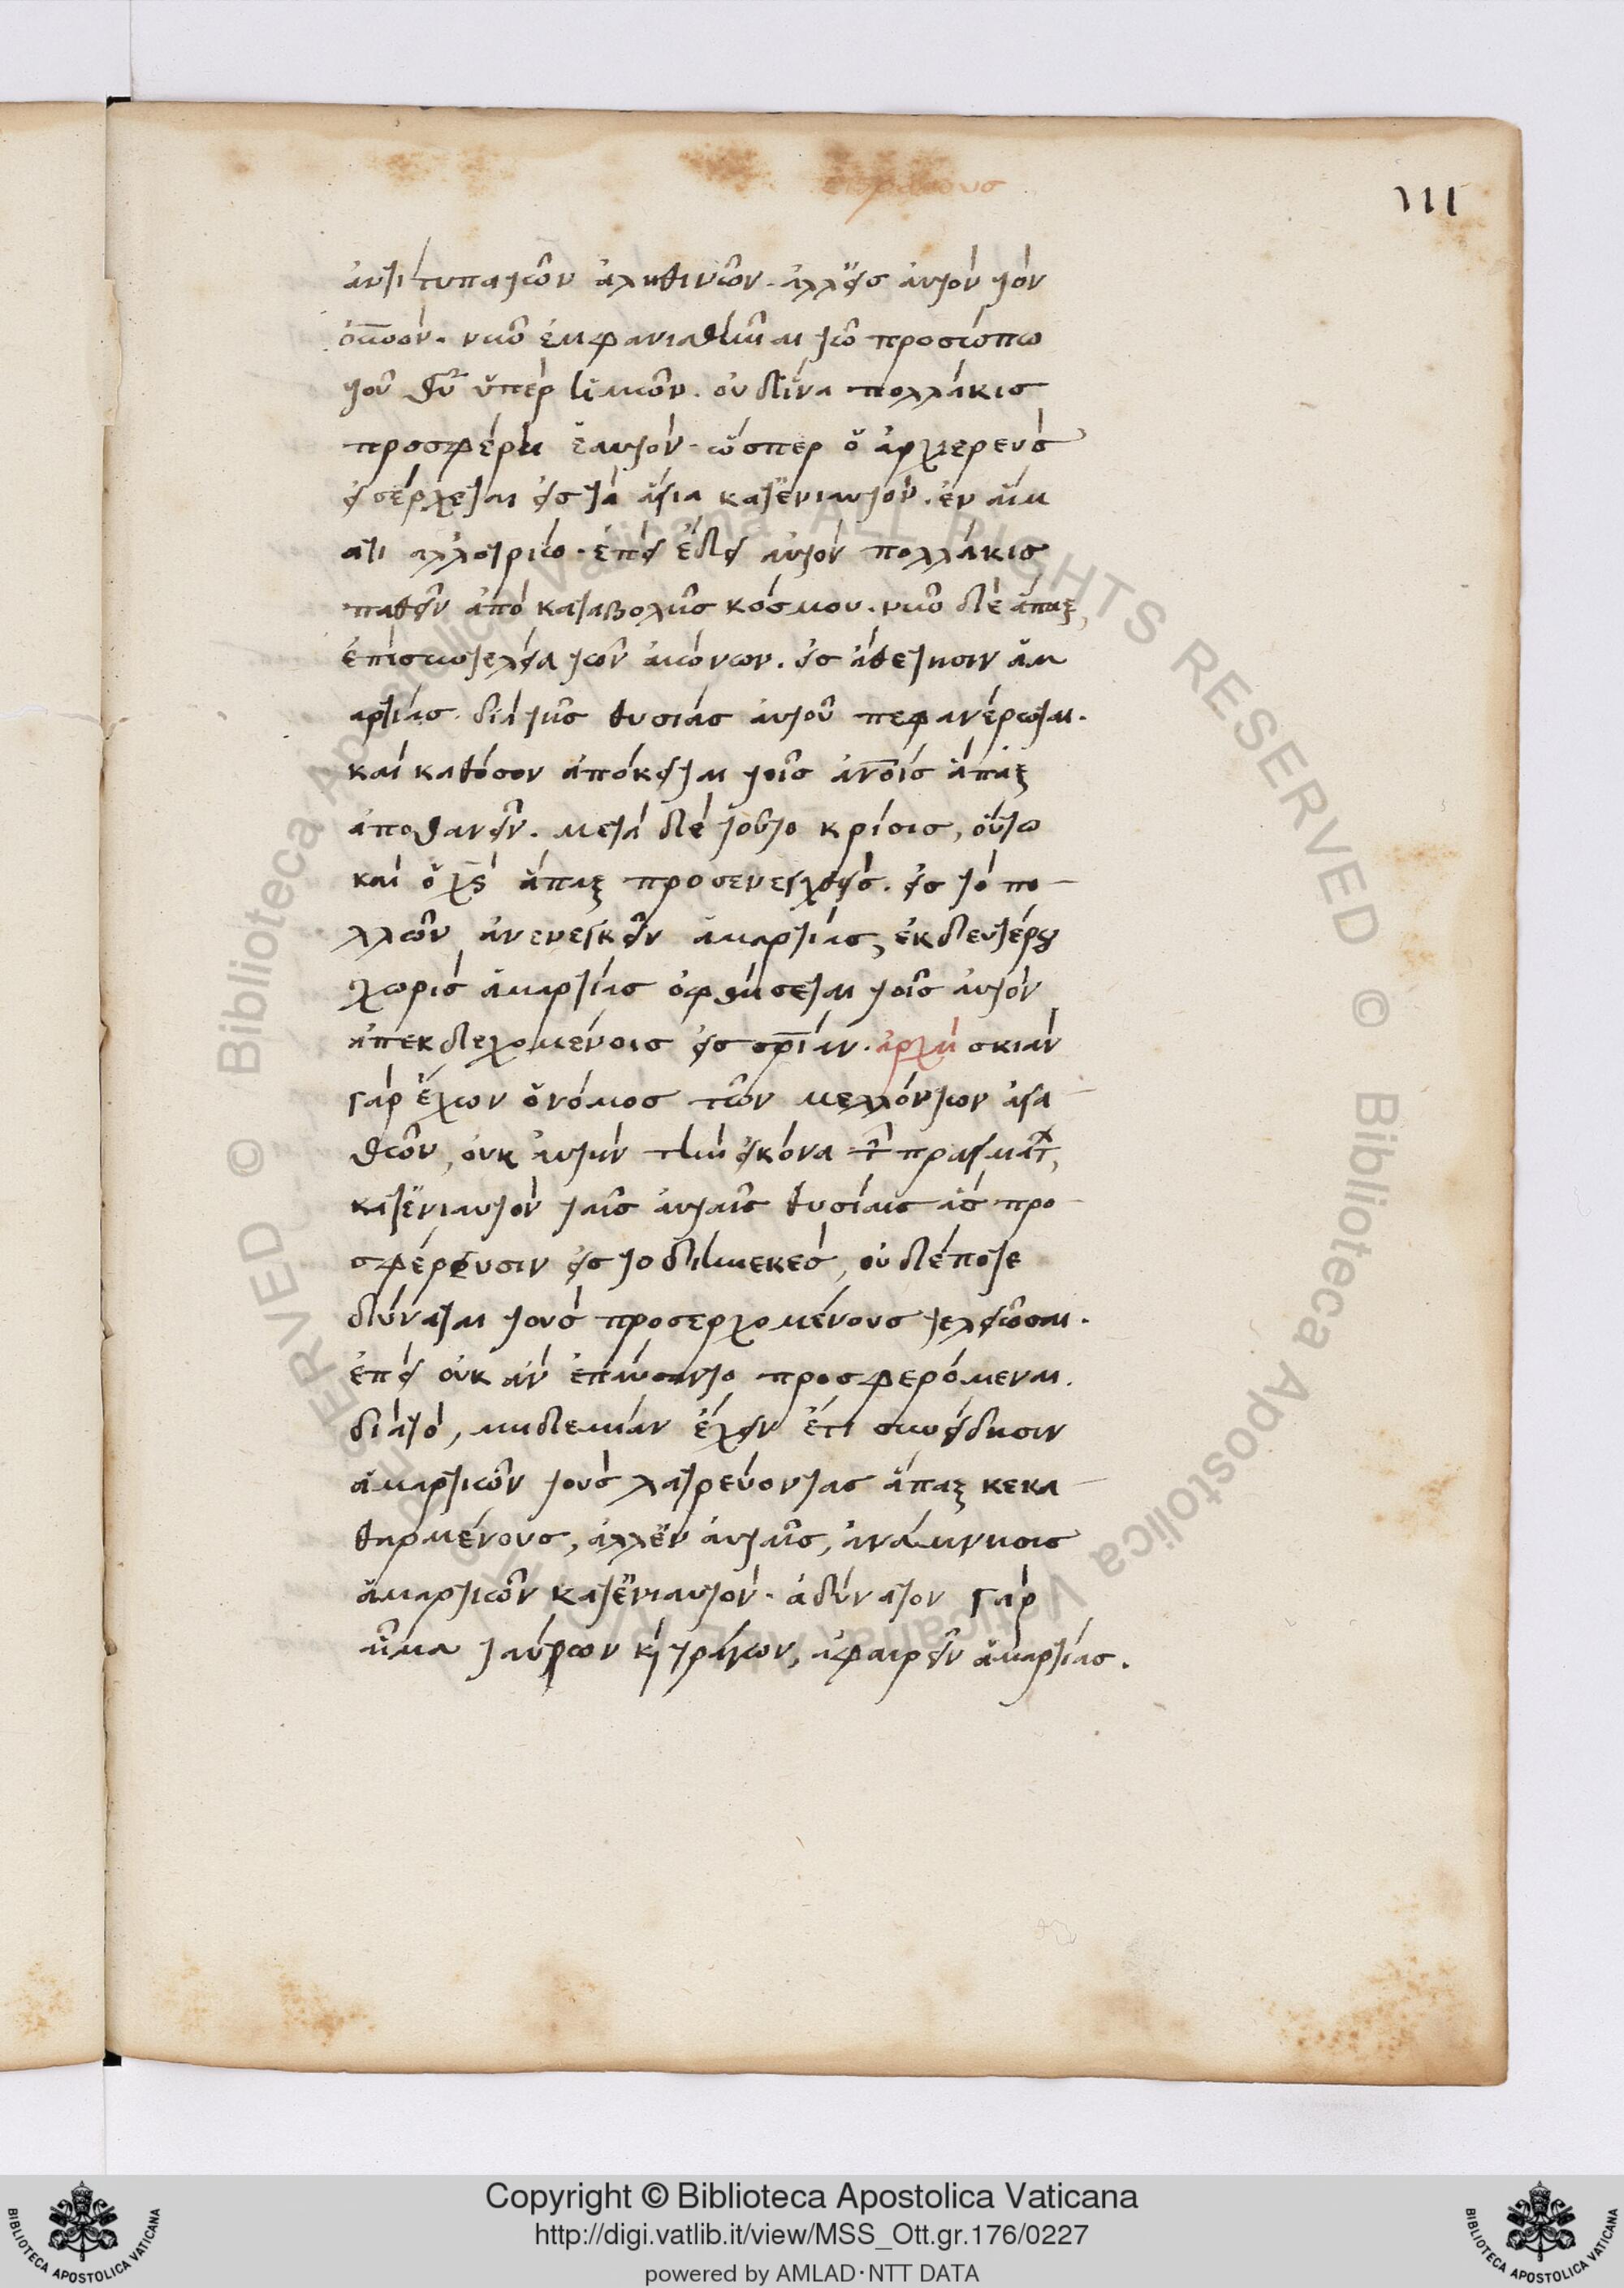 ἑβραίους
111
ἀντίτυπα τῶν ἀληθινῶν. ἀλλ' εἰς αὐτὸν τὸν
οὐνον. νῦν ἐμφανισθῆναι τῶ προσώπω
τοῦ θυ ὑπὲρ ἡμῶν. οὐδ' ἵνα πολλάκις
προσφέρη ἑαυτὸν. ὥσπερ ὁ ἀρχιερεὺς
εἰσέρχεται εἰς τὰ ἅγια κατ' ἐνιαυτὸν. ἐν αἵμ
ατι αλλοτρίω. ἐπεὶ ἔδει αὐτὸν πολλάκις
παθεῖν ἀπὸ καταβολῆς κόσμου. νῦν δὲ ἅπαξ,
ἐπὶ συντελεία τῶν αἰώνων. εἰς ἀθέτησιν ἁμ
αρτίας. διὰ τῆς θυσίας αὐτοῦ πεφανέρωται.
καὶ καθόσον ἀπόκειται τοῖς ἀνοις ἅπαξ
ἀποθανεῖν. μετὰ δὲ τοῦτο κρίσις, οὕτω
καὶ ὁ χς ἅπαξ προσενεχθεὶς. εἰς τὸ πο
λλῶν ἀνενεγκεῖν ἁμαρτίας, ἐκ δευτέρου
χωρὶς ἁμαρτίας ὀφθήσεται τοῖς αὐτὸν
ἀπεκδεχομένοις εἰς σρίαν. ἀρχὴ σκιὰν
γὰρ ἔχων ὁ νόμος τῶν μελλόντων ἀγα
θῶν, οὐκ αὐτὴν τὴν εἰκόνα τ πραγματ,
κατ' ἐνιαυτὸν ταῖς αὐταῖς θυσίαις ἃς προ
σφέρουσιν εἰς το διηνεκὲς, οὐδέποτε
δύναται τοὺς προσερχομένους τελειῶσαι.
ἐπεὶ οὐκ ἂν ἐπαύσαντο προσφερόμεναι.
διὰ τὸ, μηδεμίαν ἔχειν ἔτι συνείδησιν
ἁμαρτιῶν τοὺς λατρεύοντας ἅπαξ κεκα
θαρμένους, ἀλλ' ἐν αὐταῖς, ἀνάμνησις
ἁμαρτιῶν κατ' ἐνιαυτὸν. ἀδύνατον γὰρ
αἷμα ταύρων κ τράγων, ἀφαιρεῖν ἁμαρτίας.
Copyright © Biblioteca Apostolica Vaticana
http://digi.vatlib.it/view/MSS_Ott.gr.176/0227
powered by AMLAD·NTT DATA